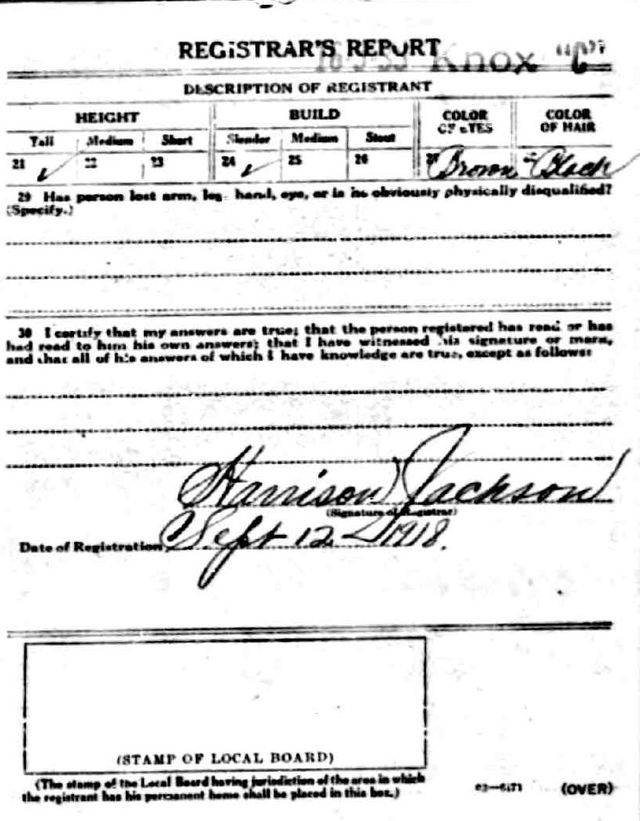 REGISTRAR'S REPORT
Knox
DESCRIPTION OF REGISTRANT
HEIGHT BUILD COLOR OF EYES COLOR OF HAIR
Tall Medium Short Slender Medium Stout
21 ✓ 22 23 24 ✓ 25 26 27 Brown Black
29 Has person lost arm, leg, hand, eye, or is he obviously physically disqualified?
(Specify.)
30 I certify that my answers are true; that the person registered has read or has
had read to him his own answers; that I have witnessed his signature or mark,
and that all of his answers of which I have knowledge are true, except as follows:
Harrison Jackson
(Signature of Registrar)
Date of Registration Sept 12 - 1918.
(STAMP OF LOCAL BOARD)
(The stamp of the Local Board having jurisdiction of the area in which
the registrant has his permanent home shall be placed in this box.)
(OVER)